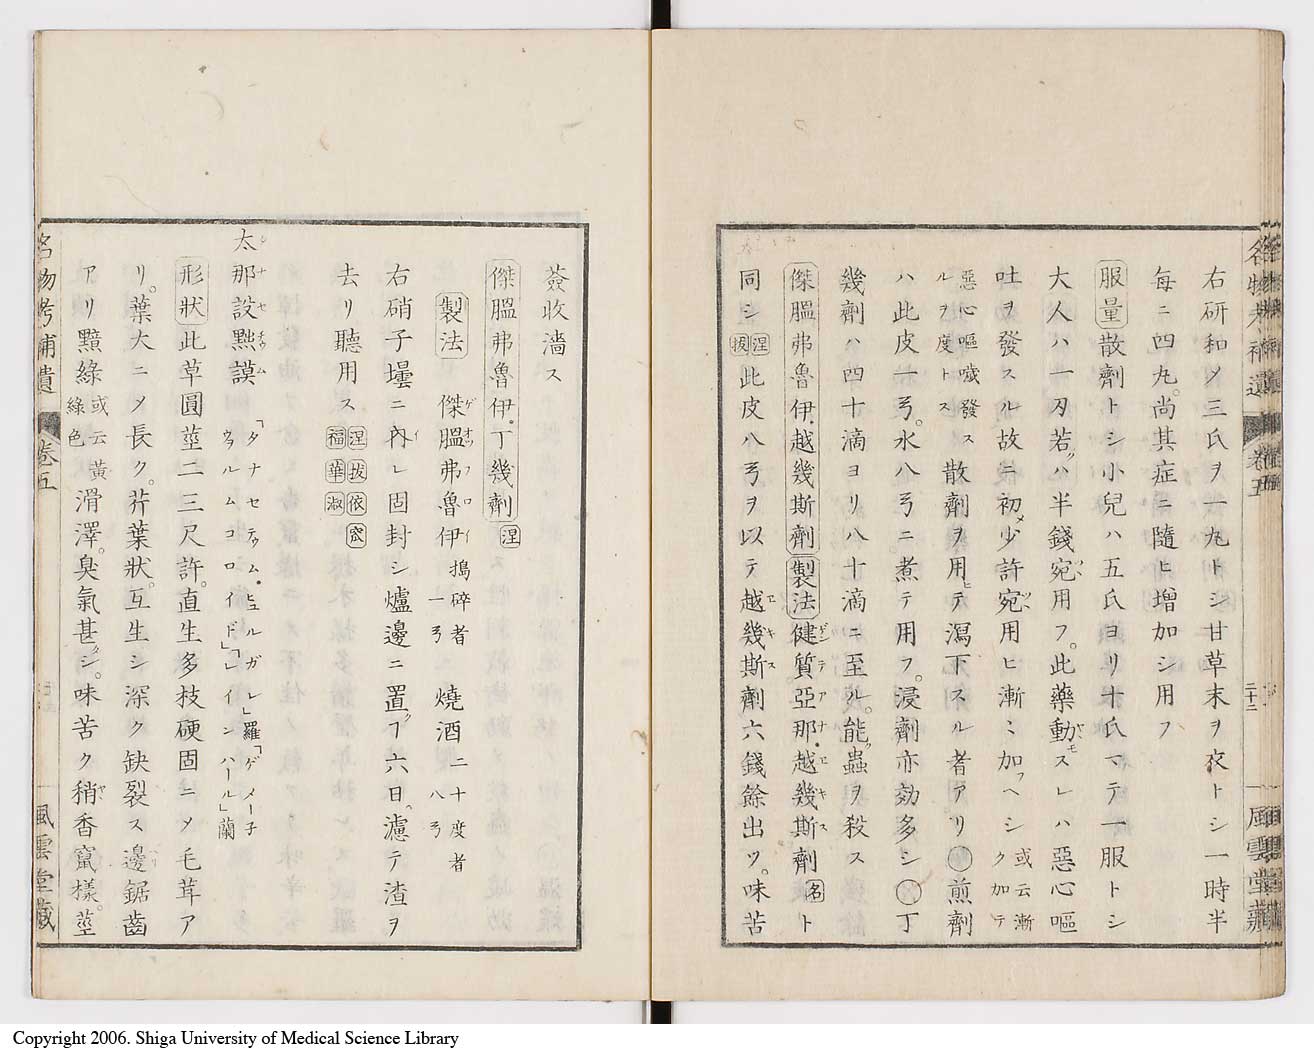 右研和メ三氏ヲ一丸トシ甘草末ヲ衣トシ一時半
每ニ四丸。尚其症ニ隨ヒ增加シ用フ
服量 散劑トシ小兒ハ五氏ヨリ十氏マテ一服トシ
大人ハ一刃若ハ半錢宛用フ。此藥動スレハ惡心嘔
吐ヲ發スル故ニ初少許宛用ヒ漸ミ加ヘシ 或云漸ク加テ
惡心嘔噦發スルヲ度トス 散劑ヲ用テ瀉下スル者アリ 煎劑
ハ此皮一弓。水八弓ニ煮テ用フ。浸劑亦効多シ 丁
幾劑ハ四十滴ヨリ八十滴ニ至ル。能蟲ヲ殺ス
傑膃弗魯伊.越幾斯劑 製法 健質亞那.越幾斯劑 名 ト
同シ 涅 扳 此皮八弓ヲ以テ越幾斯劑六錢餘出ツ。味苦
名物考補遺 卷五 風雲堂藏
簽收濇ス
傑膃弗魯伊.丁幾劑 涅
製法 傑膃弗魯伊 搗碎者一弓 燒酒 二十度者八弓
右硝子壜ニ內レ固封シ爐邊ニ置ク六日。濾テ渣ヲ
去リ聽用ス 涅 扳 依 宻 福 華 淑
太那設黙謨 「タナセテゥム.ヒュルガレ」羅「ゲメー子ウルムコロイド」「レインハール」蘭
形狀 此草圓莖二三尺許。直生多枝硬固ニメ毛茸ア
リ。葉大ニメ長ク。芥葉狀。互生シ深ク缺裂ス邊鋸齒
アリ黯綠 或云黃綠色 滑澤。臭氣甚シ。味苦ク稍香竄樣。莖
名物考補遺 卷五 風雲堂藏
Copyright 2006. Shiga University of Medical Science Library